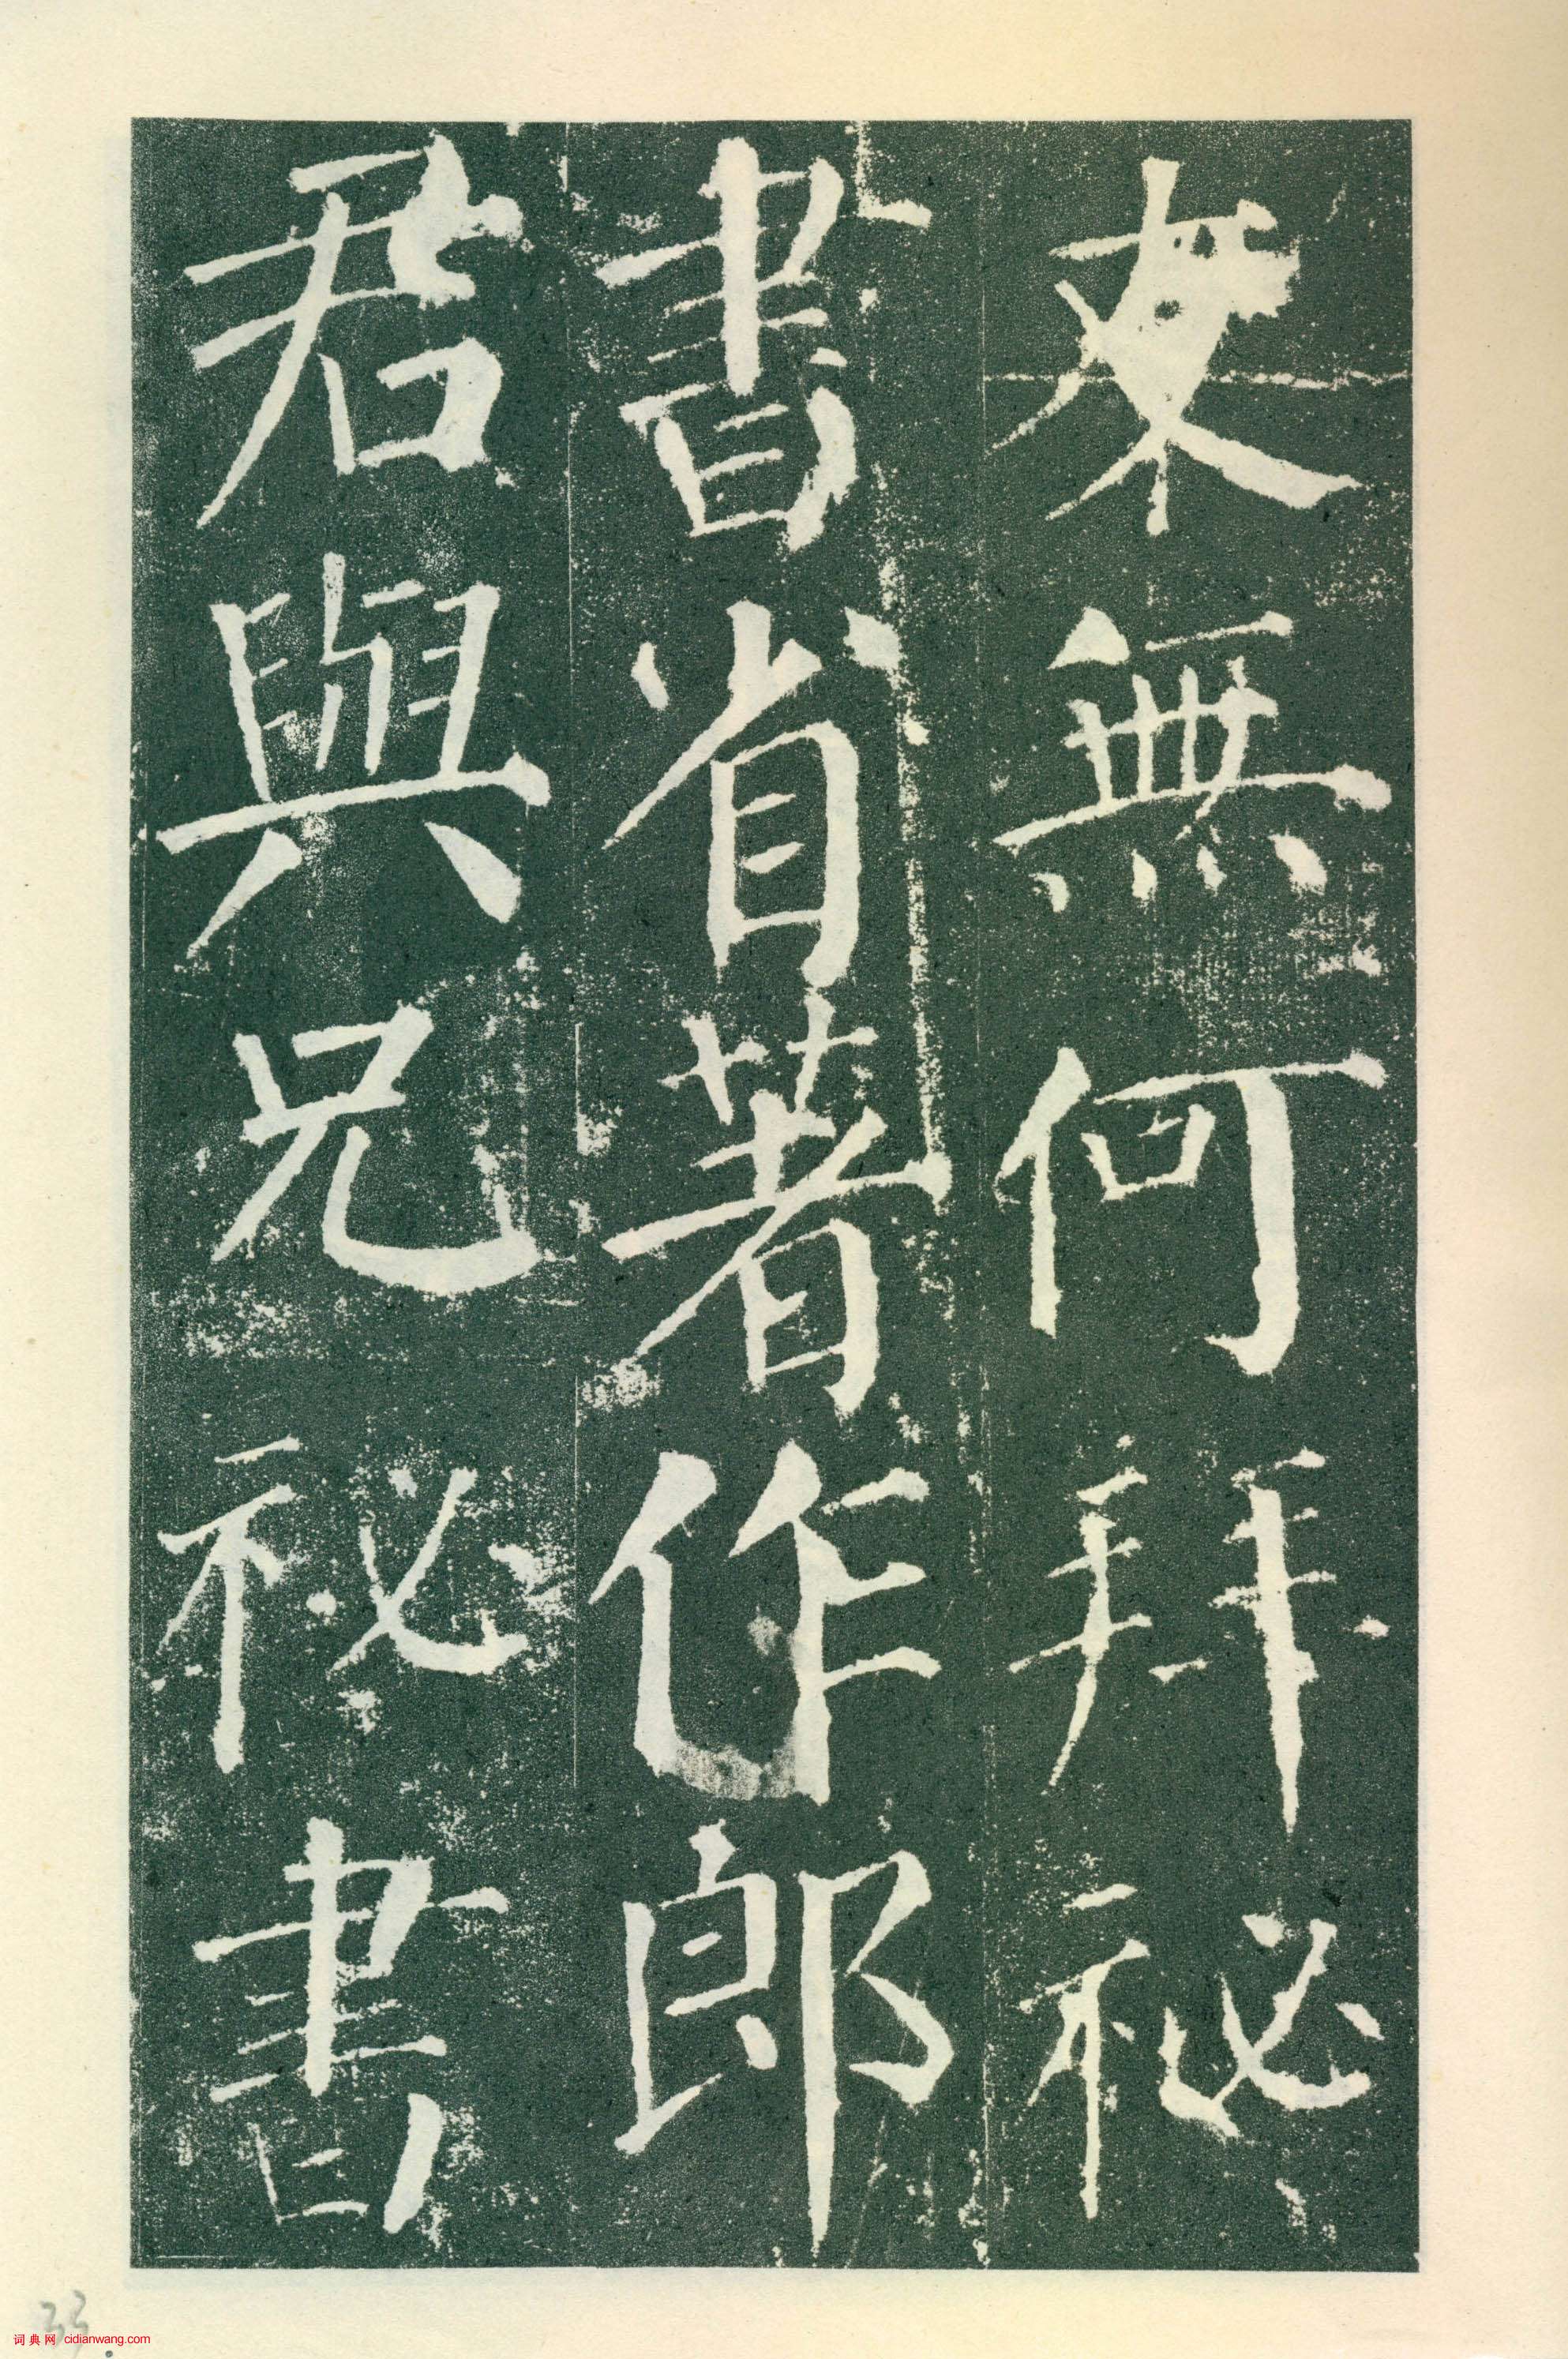 友無何拜祕
書省著作郎
君與兄祕書
33
词典网 cidianwang.com